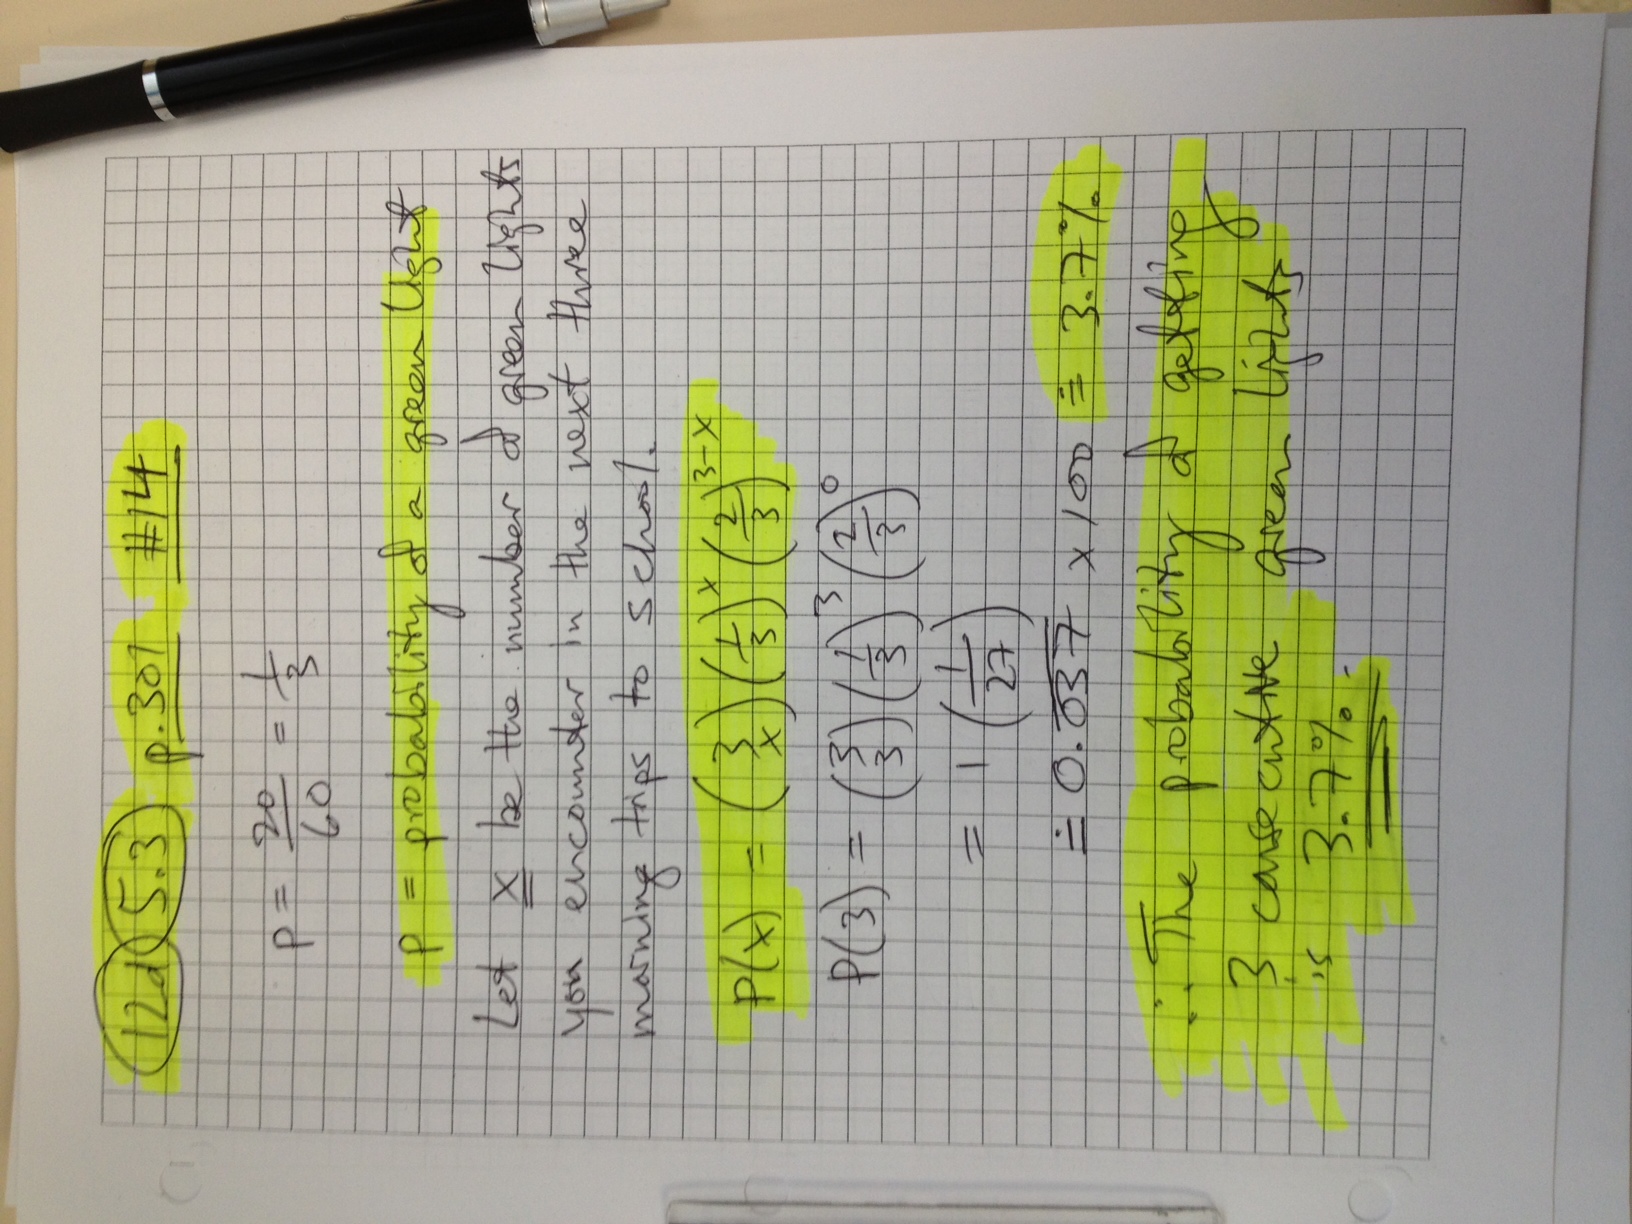 12d 5.3 p.301 #14
p = 20/60 = 1/3
p = probability of a green light
Let x be the number of green lights
you encounter in the next three
morning trips to school.
P(x) = (3 x) (1/3)^x (2/3)^3-x
P(3) = (3 3) (1/3)^3 (2/3)^0
= 1 (1/27)
≐ 0.037 x 100 ≐ 3.7%
∴ The probability of getting
3 consecutive green lights
is 3.7%.